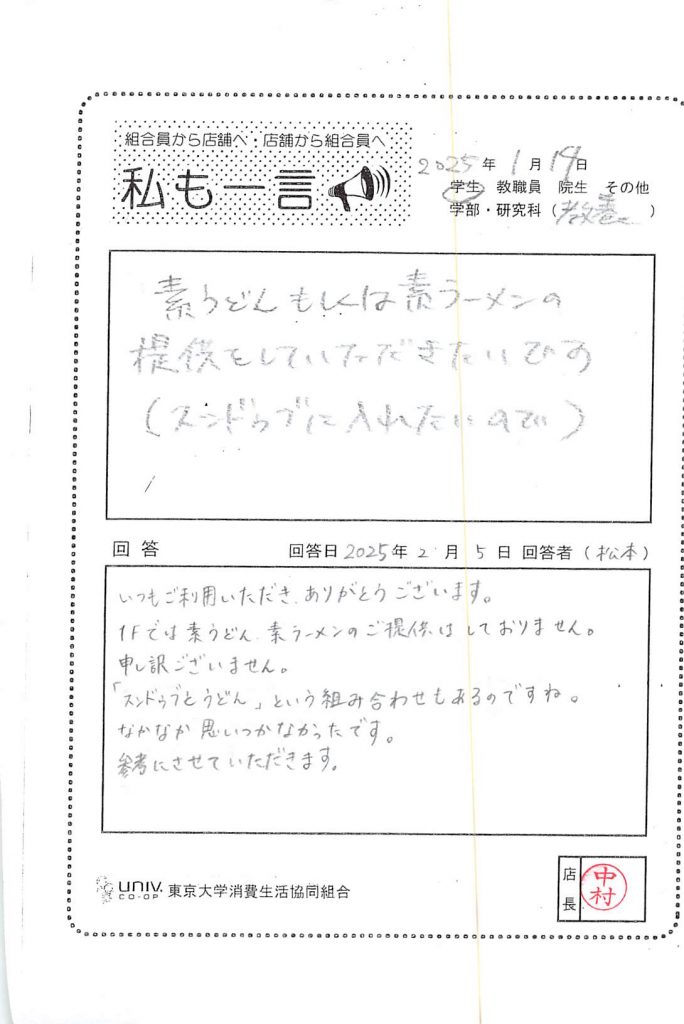 組合員から店舗へ・店舗から組合員へ
私も一言
2025年1月19日
学生 教職員 院生 その他
学部・研究科(教養)
素うどんもしくは素ラーメンの
提供をしていただきたいです
(スンドゥブに入れたいので)
回答 回答日2025年2月5日 回答者(松本)
いつもご利用いただき、ありがとうございます。
1Fでは素うどん、素ラーメンのご提供はしておりません。
申し訳ございません。
「スンドゥブとうどん」という組み合わせもあるのですね。
なかなか思いつかなかったです。
参考にさせていただきます。
UNIV. CO-OP 東京大学消費生活協同組合
店長 中村